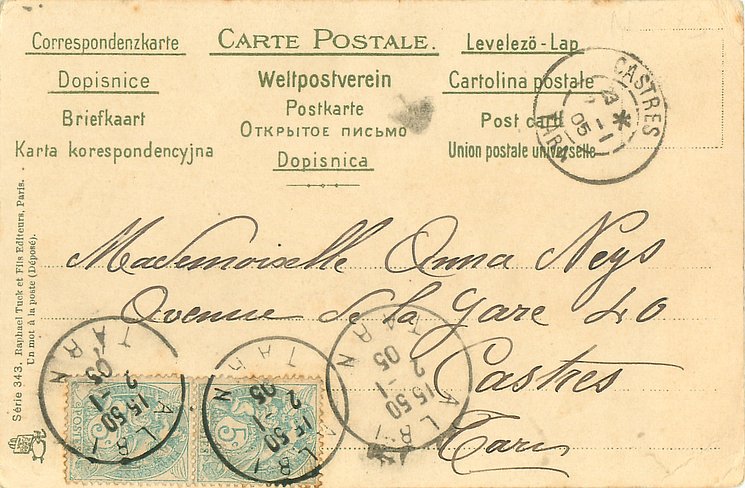 Correspondenzkarte
CARTE POSTALE.
Levelező-Lap
Dopisnice
Weltpostverein
Cartolina postale
Briefkaart
Postkarte
Post card
Karta korespondencyjna
ОТКРЫТОЕ ПИСЬМО
Union postale universelle
Dopisnica
CASTRES
TARN
05
Mademoiselle Anna Neys
Avenue de la Gare 40
Castres
Tarn
ALBI
TARN
15 50
2 -1
05
ALBI
TARN
15 50
2 -1
05
ALBI
TARN
15 50
2 -1
05
POSTES
5
Série 343. Raphael Tuck et Fils Editeurs, Paris.
Un mot à la poste (Déposé).